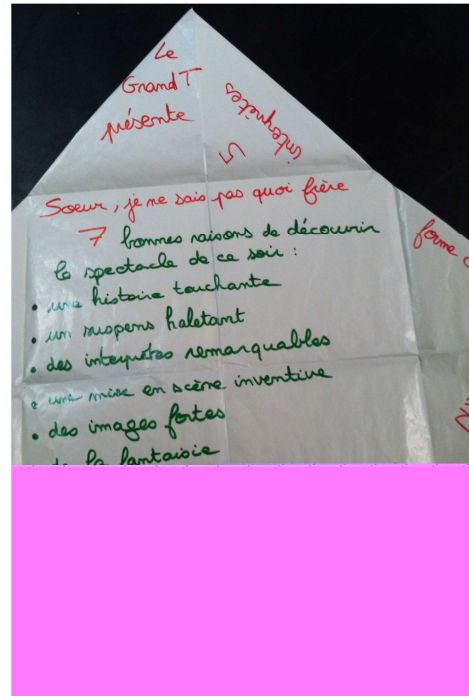 Le
Grand T
présente
5
interprètes
Soeur, je ne sais pas quoi frère
7 bonnes raisons de découvrir
le spectacle de ce soir :
• une histoire touchante
• un suspens haletant
• des interprètes remarquables
• une mise en scène inventive
• des images fortes
de la fantaisie
forme